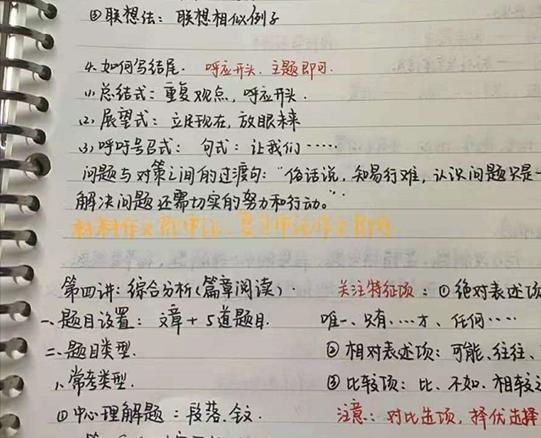 ④联想法：联想相似例子
4.如何写结尾. 呼应开头.主题即可.
(1)总结式：重复观点，呼应开头.
(2)展望式：立足现在，放眼未来
(3)呼吁号召式： 句式：让我们……
问题与对策之间的过渡句：“俗话说，知易行难，认识问题只是一
解决问题还需切实的努力和行动。”
第四讲：综合分析(篇章阅读). 关注特征项：①绝对表述项
一、题目设置：文章+5道题目. 唯一、只有……才、任何……
二、题目类型. ②相对表述项：可能、往往、
1、常考类型. ③比较项：比、不如、相较之
①中心理解题：段落.全文. 注意：对比选项，择优选择